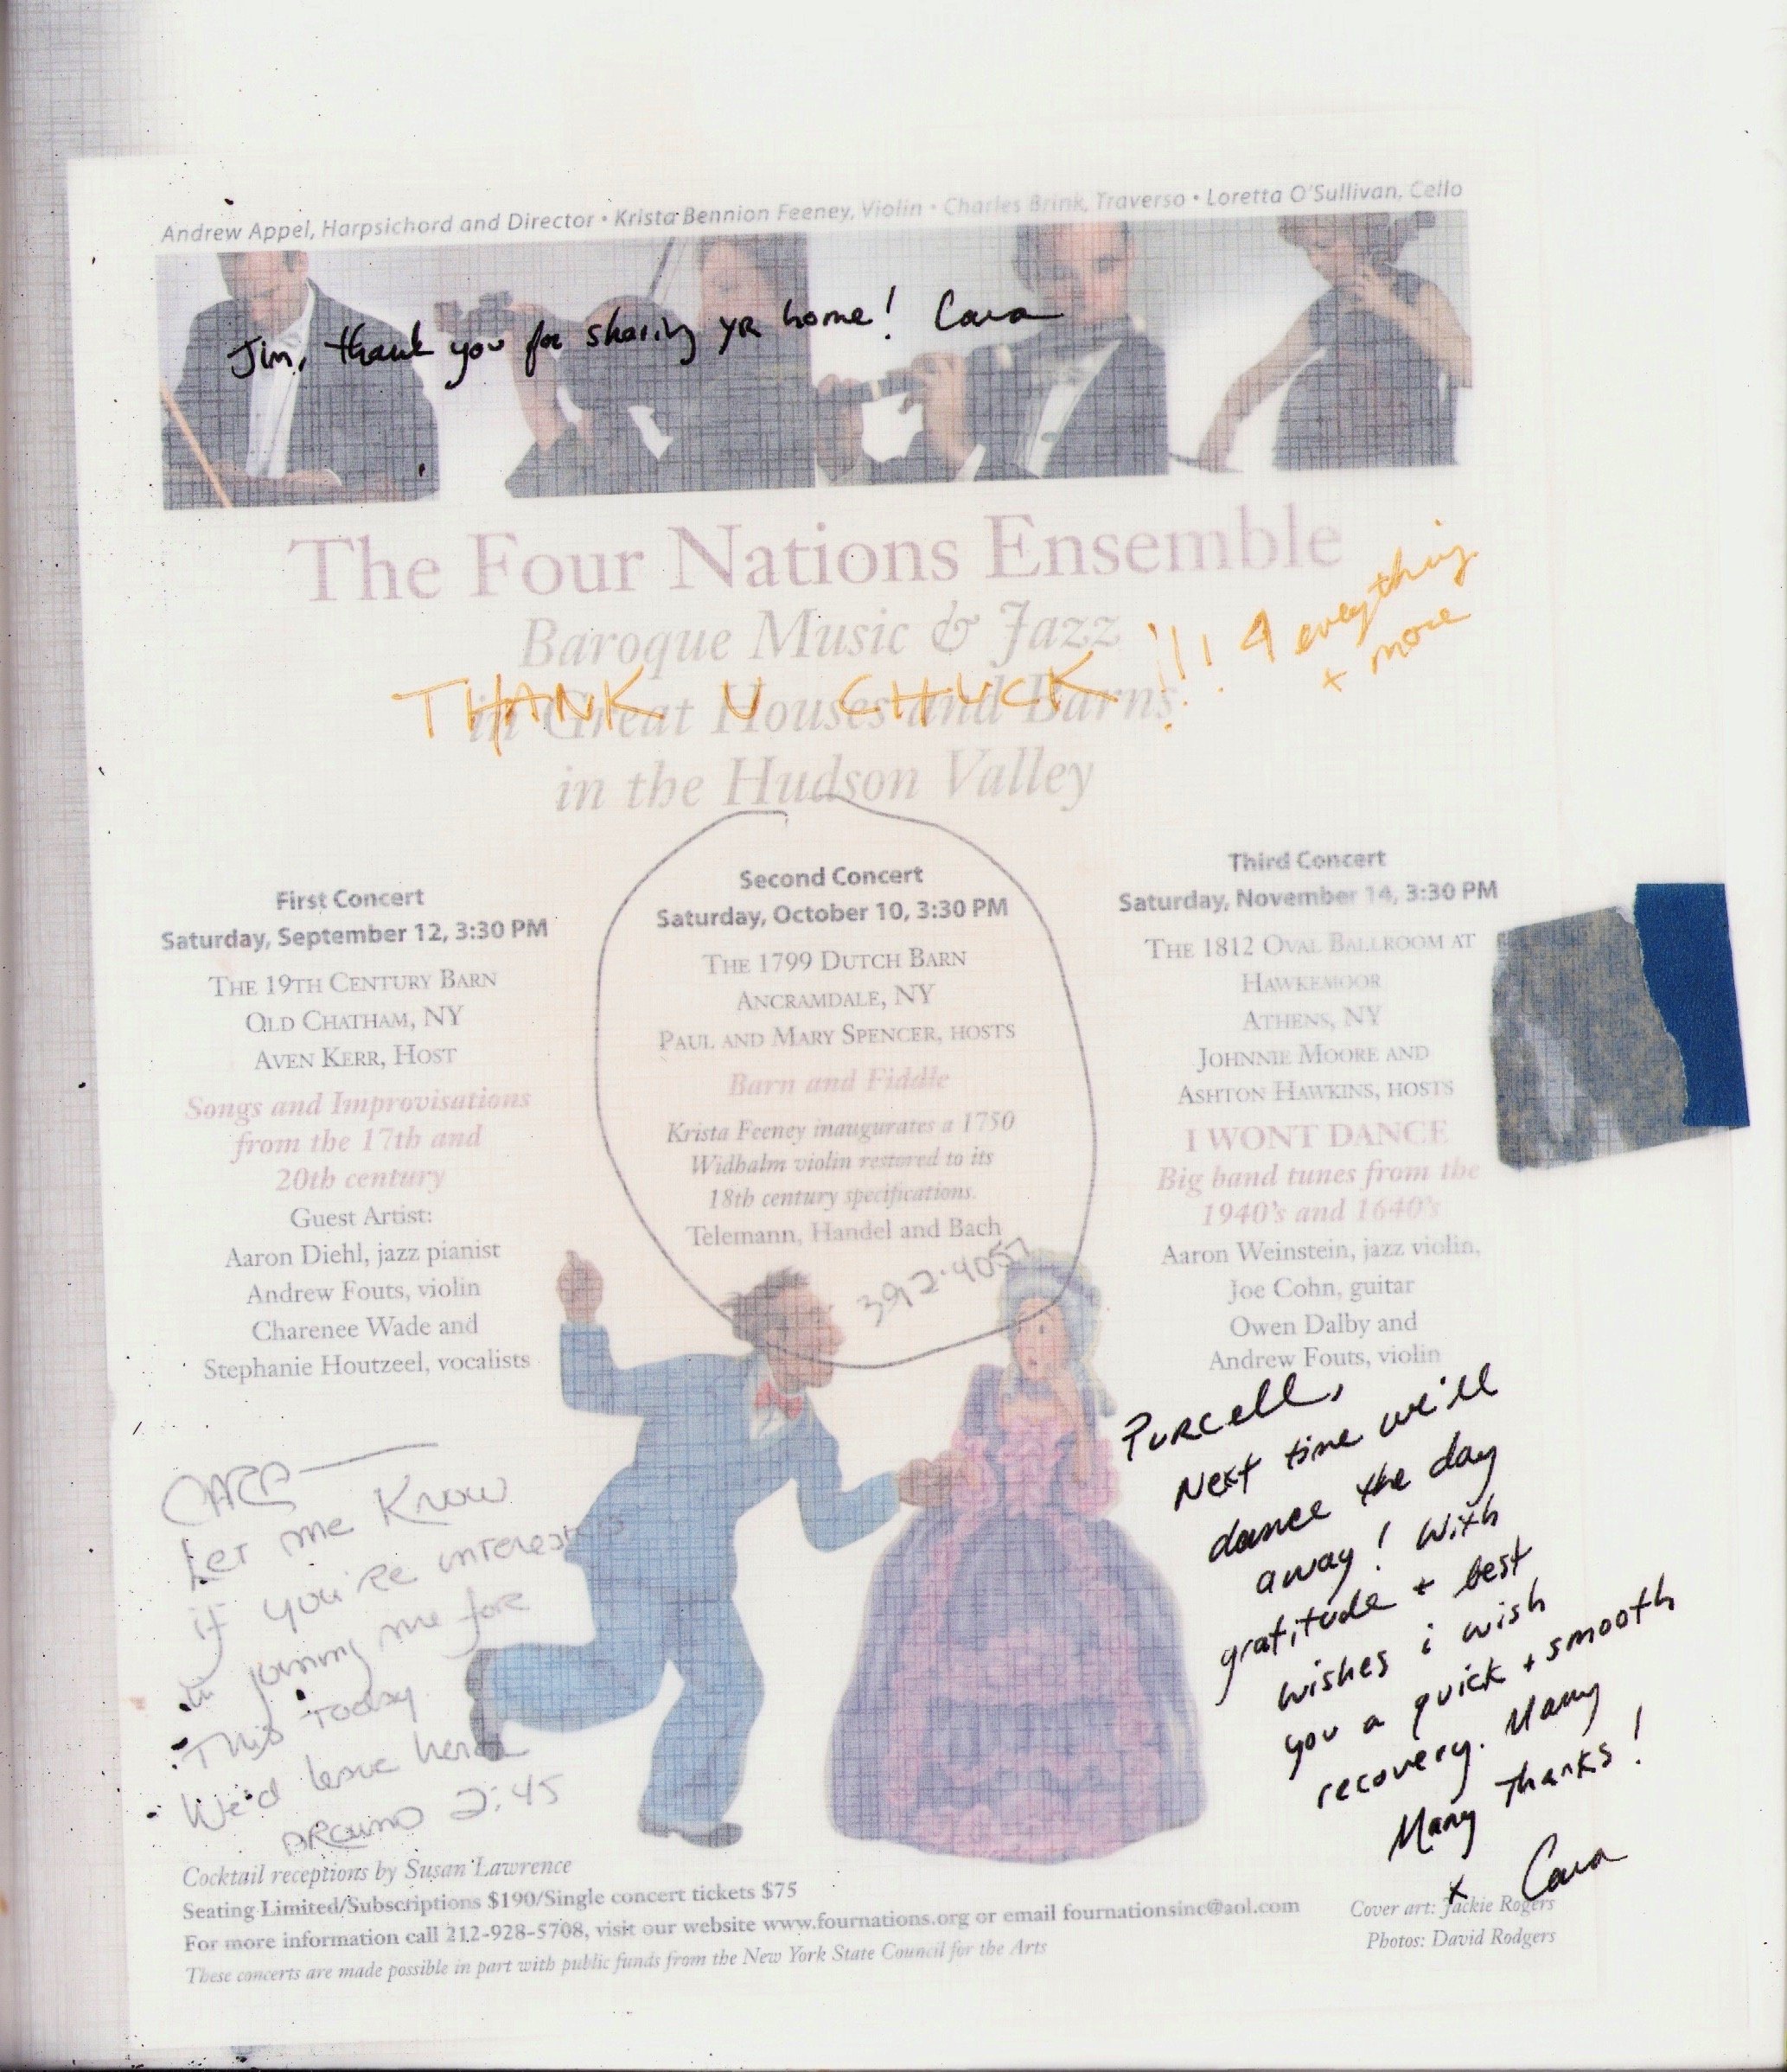 Andrew Appel, Harpsichord and Director • Krista Bennion Feeney, Violin • Charles Brink, Traverso • Loretta O'Sullivan, Cello
Jim, thank you for sharing yr home! Cara
The Four Nations Ensemble
Baroque Music & Jazz
in Great Houses and Barns
in the Hudson Valley
THANK U CHUCK!!! 4 everything
+ more
First Concert
Saturday, September 12, 3:30 PM
The 19th Century Barn
Old Chatham, NY
Aven Kerr, Host
Songs and Improvisations
from the 17th and
20th century
Guest Artist:
Aaron Diehl, jazz pianist
Andrew Fouts, violin
Charenee Wade and
Stephanie Houtzeel, vocalists
Second Concert
Saturday, October 10, 3:30 PM
The 1799 Dutch Barn
Ancramdale, NY
Paul and Mary Spencer, hosts
Barn and Fiddle
Krista Feeney inaugurates a 1750
Widhalm violin restored to its
18th century specifications.
Telemann, Handel and Bach
392·4057
Third Concert
Saturday, November 14, 3:30 PM
The 1812 Oval Ballroom at
Hawkemoor
Athens, NY
Johnnie Moore and
Ashton Hawkins, hosts
I WONT DANCE
Big band tunes from the
1940's and 1640's
Aaron Weinstein, jazz violin,
Joe Cohn, guitar
Owen Dalby and
Andrew Fouts, violin
CARA—
Let me know
if you're interested
in joining me for
This today
We'd leave here
around 2:45
Purcell,
Next time we'll
dance the day
away! With
gratitude + best
wishes i wish
you a quick + smooth
recovery. Many
Many Thanks!
x Cara
Cocktail receptions by Susan Lawrence
Seating Limited/Subscriptions $190/Single concert tickets $75
For more information call 212-928-5708, visit our website www.fournations.org or email fournationsinc@aol.com
These concerts are made possible in part with public funds from the New York State Council for the Arts
Cover art: Jackie Rogers
Photos: David Rodgers